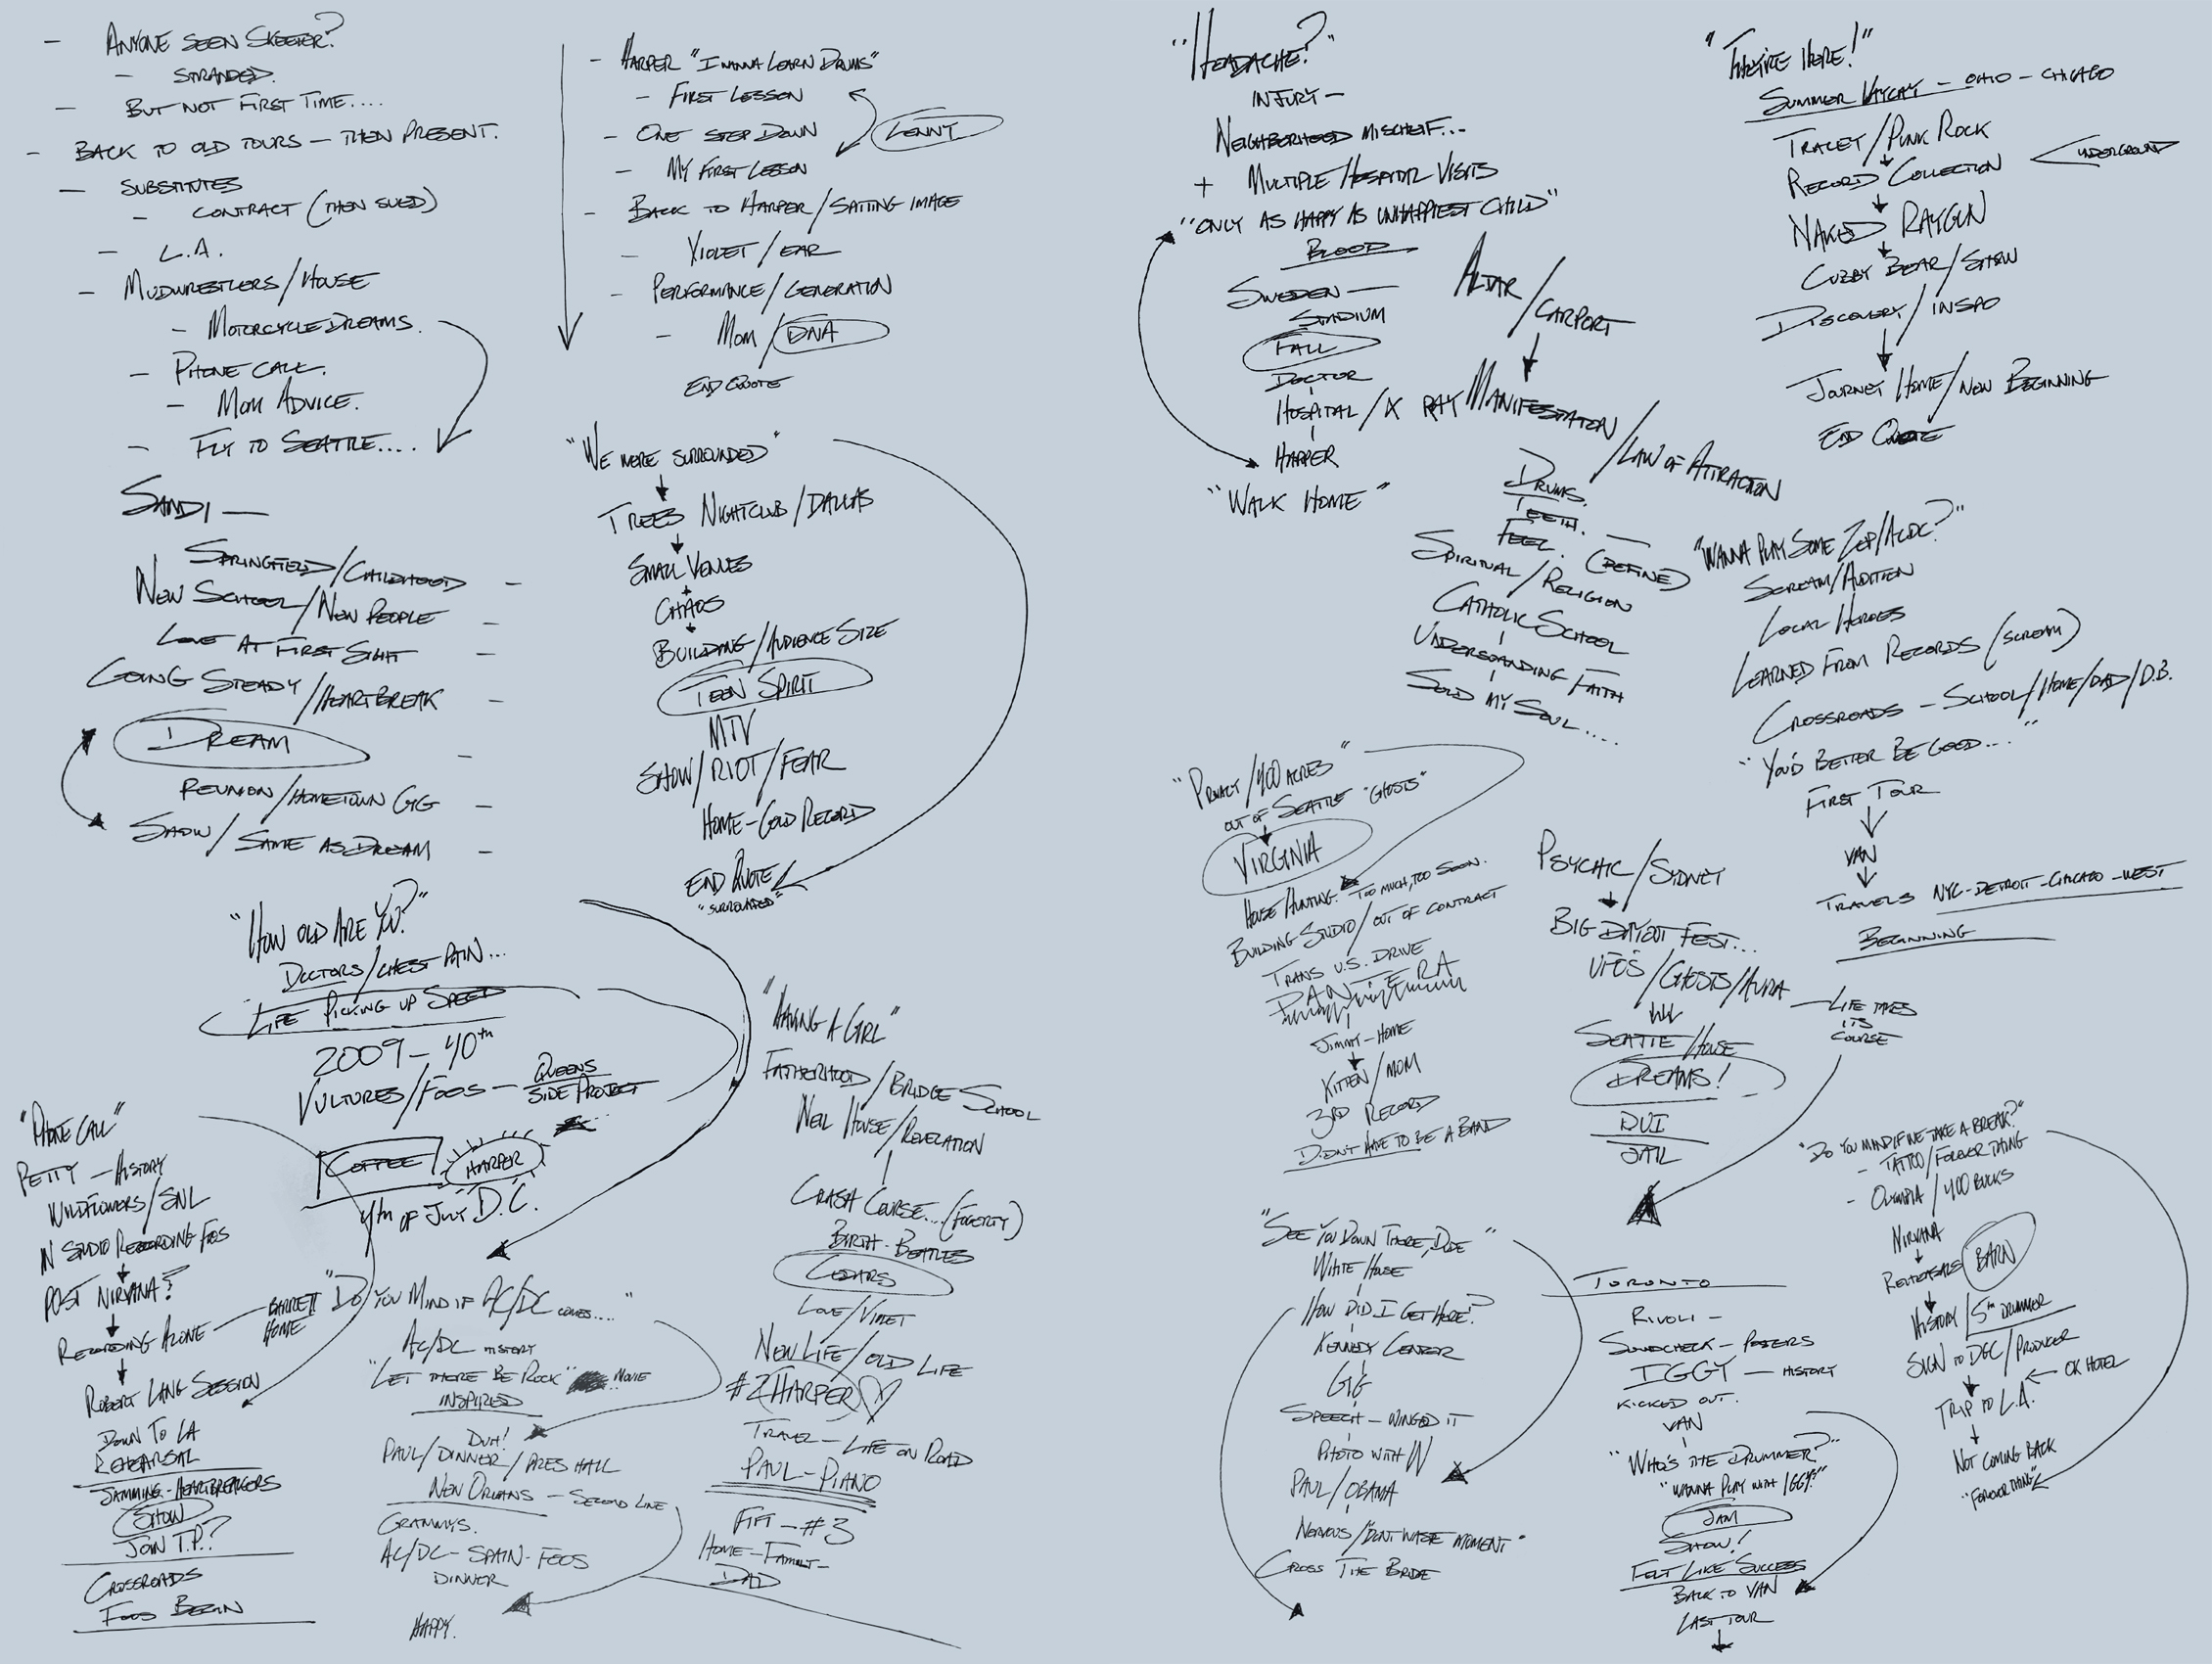 - ANYONE SEEN SKEETER?
- STRANDED.
- BUT NOT FIRST TIME....
- BACK TO OLD TOURS - THEN PRESENT.
- SUBSTITUTES
- CONTRACT (THEN SUED)
- L.A.
- MUDWRESTLERS/HOUSE
- MOTORCYCLE DREAMS.
- PHONE CALL.
- MOM ADVICE.
- FLY TO SEATTLE....
SANDI -
SPRINGFIELD/CHILDHOOD -
NEW SCHOOL/NEW PEOPLE -
LOVE AT FIRST SIGHT -
GOING STEADY/HEARTBREAK -
DREAM -
REUNION/HOMETOWN GIG -
SHOW/SAME AS DREAM -
"HOW OLD ARE YOU?"
DOCTORS/CHEST PAIN...
LIFE PICKING UP SPEED
2009 - 40th
VULTURES/FOOS - QUEENS
SIDE PROJECT
COFFEE HARPER
4th OF JULY D.C.
"PHONE CALL"
PETTY - HISTORY
WILDFLOWERS/SNL
IN STUDIO RECORDING FOOS
POST NIRVANA?
RECORDING ALONE - BARRETT
HOME
ROBERT LANG SESSION
DOWN TO LA
REHEARSAL
JAMMING - HEARTBREAKERS
SHOW
JOIN T.P.?
CROSSROADS
FOOS BEGIN
"DO YOU MIND IF AC/DC COMES...."
AC/DC HISTORY
"LET THERE BE ROCK" MOVIE
INSPIRED
DUH!
PAUL/DINNER/PRES HALL
NEW ORLEANS - SECOND LINE
GRAMMYS.
AC/DC - SPAIN - FOOS
DINNER
HAPPY.
- HARPER "I WANNA LEARN DRUMS"
- FIRST LESSON
- ONE STEP DOWN LENNY
- MY FIRST LESSON
- BACK TO HARPER/SATTING IMAGE
- VIOLET/EAR
- PERFORMANCE/GENERATION
- MOM/DNA
END QUOTE
"WE WERE SURROUNDED"
TREES NIGHTCLUB/DALLAS
SMALL VENUES
CHAOS
BUILDING/AUDIENCE SIZE
TEEN SPIRIT
MTV
SHOW/RIOT/FEAR
HOME - GOLD RECORD
END QUOTE
"SURROUNDED"
"HAVING A GIRL"
FATHERHOOD/BRIDGE SCHOOL
NEIL HOUSE/REVELATION
CRASH COURSE... (FOGERTY)
BIRTH - BEATLES
CEDARS
LOVE/VIOLET
NEW LIFE/OLD LIFE
#2 HARPER
TRAVEL - LIFE ON ROAD
PAUL - PIANO
FIFI - #3
HOME - FAMILY -
DAD
"HEADACHE?"
INJURY -
NEIGHBORHOOD MISCHEIF...
+ MULTIPLE HOSPITAL VISITS
"ONLY AS HAPPY AS UNHAPPIEST CHILD"
BLOOD
SWEDEN -
STADIUM
FALL
DOCTOR
HOSPITAL/X RAY
HARPER
"WALK HOME"
ALTAR/CARPORT
MANIFESTATION/LAW OF ATTRACTION
DRUMS.
TEETH.
FEEL. (DEFINED)
SPIRITUAL/RELIGION
CATHOLIC SCHOOL
UNDERSTANDING FAITH
SOLD MY SOUL....
"THEY'RE HERE!"
SUMMER VAYCAY - OHIO - CHICAGO
TRACEY/PUNK ROCK
RECORD COLLECTION UNDERGROUND
NAKED RAYGUN
CUBBY BEAR/SHOW
DISCOVERY/INSPO
JOURNEY HOME/NEW BEGINNING
END QUOTE
"WANNA PLAY SOME ZEP/ACDC?"
SCREAM/AUDITION
LOCAL HEROES
LEARNED FROM RECORDS (SCREAM)
CROSSROADS - SCHOOL/HOME/DAD/D.B.
"YOU'D BETTER BE GOOD...."
FIRST TOUR
VAN
TRAVELS NYC - DETROIT - CHICAGO - WEST
BEGINNING
"PRIVACY/400 ACRES"
OUT OF SEATTLE "GHOSTS"
VIRGINIA
HOUSE HUNTING. TOO MUCH, TOO SOON.
BUILDING STUDIO/OUT OF CONTRACT
TRANS U.S. DRIVE
PANTERA
JIMMY - HOME
KITTEN/MOM
3RD RECORD
DIDN'T HAVE TO BE A BAND
PSYCHIC/SYDNEY
BIG DAY OUT FEST...
UFOS/GHOSTS/AURA
SEATTLE/HOUSE
DREAMS!
DUI
JAIL
- LIFE TAKES
ITS
COURSE
"SEE YOU DOWN THERE, DUDE"
WHITE HOUSE
HOW DID I GET HERE?
KENNEDY CENTER
GIG
SPEECH - WINGED IT
PHOTO WITH W
PAUL/OBAMA
NERVOUS/"DONT WASTE MOMENT"
CROSS THE BRIDGE
TORONTO
RIVOLI -
SOUNDCHECK - POSTERS
IGGY - HISTORY
KICKED OUT.
VAN
"WHO'S THE DRUMMER?"
"WANNA PLAY WITH IGGY?"
JAM
SHOW!
FELT LIKE SUCCESS
BACK TO VAN
LAST TOUR
"DO YOU MIND IF WE TAKE A BREAK?"
- TATTOO/FOREVER THING
- OLYMPIA/400 BUCKS
NIRVANA
REHEARSALS BARN
HISTORY/5th DRUMMER
SIGN TO DGC/PRODUCER
TRIP TO L.A. OK HOTEL
NOT COMING BACK
"FOREVER THING"